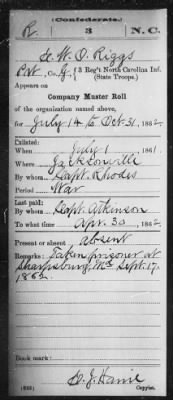 (Confederate.)
R 3 N.C.
G. W. D. Riggs
Pvt, Co. G, { 3 Reg't North Carolina Inf.
(State Troops.)
Appears on
Company Muster Roll
of the organization named above,
for July 14 to Oct. 31, 1862
Enlisted:
When July 1 1861.
Where Jacksonville
By whom Capt. Rhodes
Period War
Last paid:
By whom Capt. Atkinson
To what time Apr. 30, 1862
Present or absent absent
Remarks: Taken prisoner at
Sharpsburg, Md. Sept. 17,
1862.
Book mark:
Copyist.